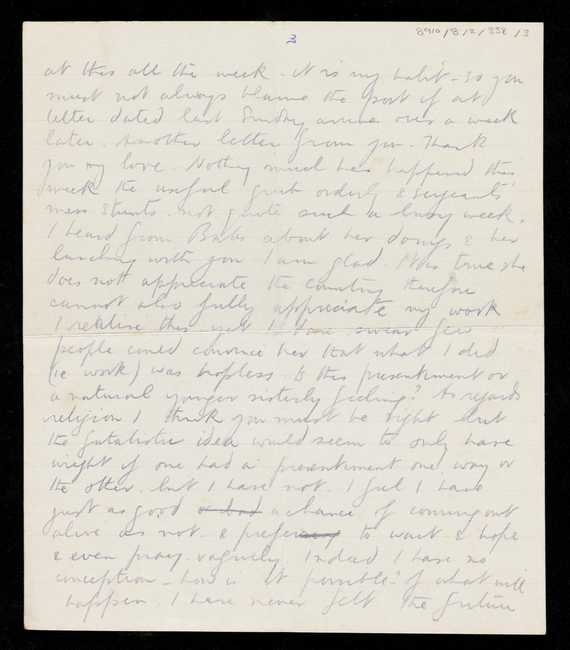 8910/8/2/358/3
3
at this all the week. It is my habit - so you
must not always blame the post if at
letter dated last Sunday arrives over a week
later. Another letter from you. Thank
you my love. Nothing much has happened this
week the useful orderly & sergeants'
mess stunts. not quite such a busy week.
I heard from Babs about her doings & her
lunching with you I am glad. It is true she
does not appreciate the country therefore
cannot also fully appreciate my work
I realise this yet I swear few
people could convince her that what I did
(ie work) was hopless. Is this presentiment or
a natural younger sisterly feeling? As regards
religion I think you must be right but
the fatalistic idea would seem to only have
weight if one had a presentiment one way or
the other. but I have not. I feel I have
just as good or bad a chance of coming out
alive as not. & prefer to wait & hope
& even pray vaguely. Indeed I have no
conception - how is it possible? of what will
happen. I have never felt the future